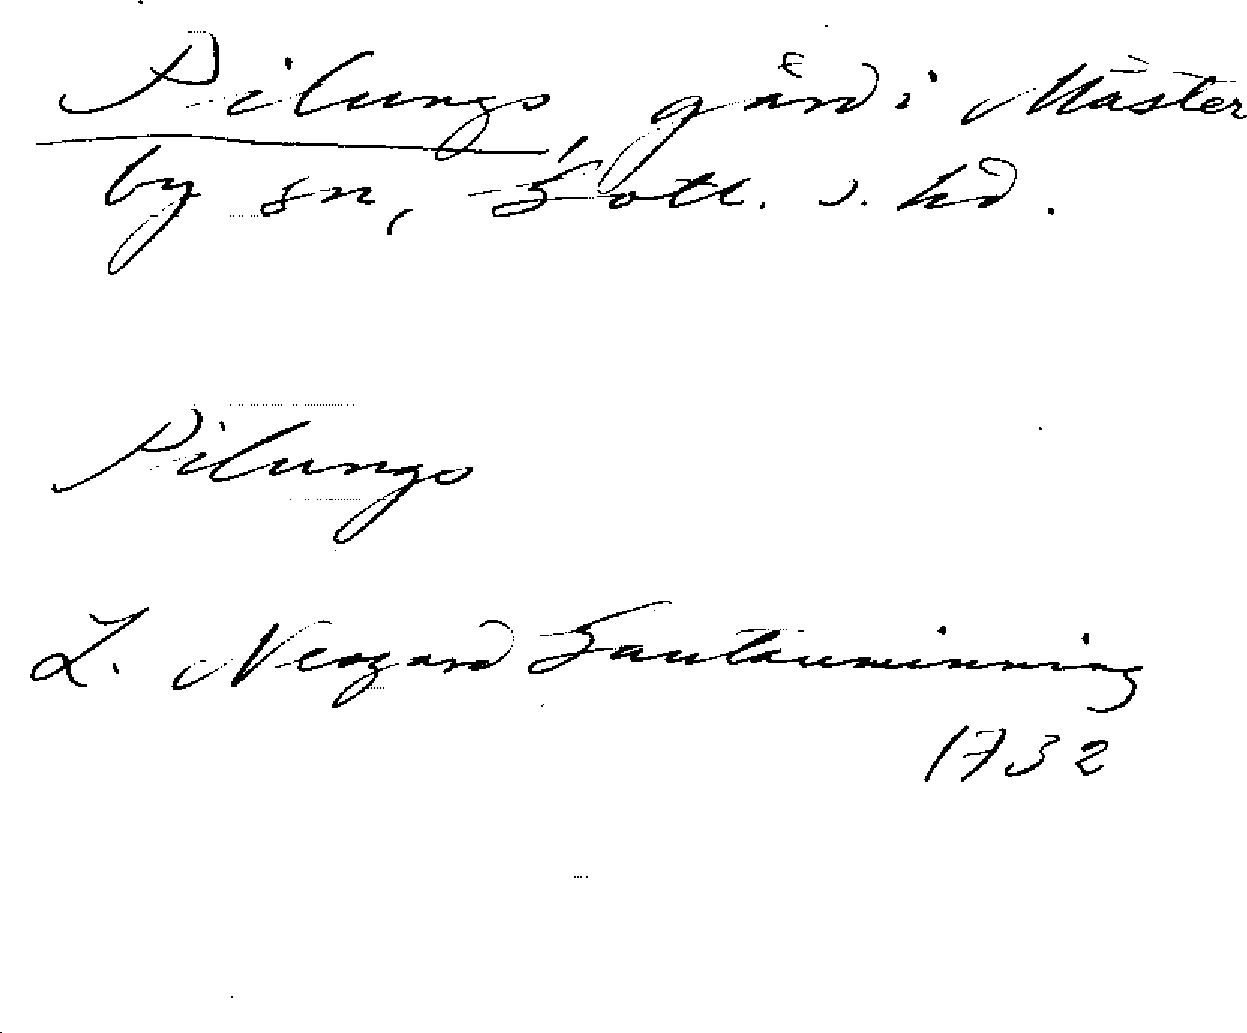 Pilungs, gård i Mäster
by sn, Gotl. s. hd.
Pilungs
L. Neogard Gautauminning
1732